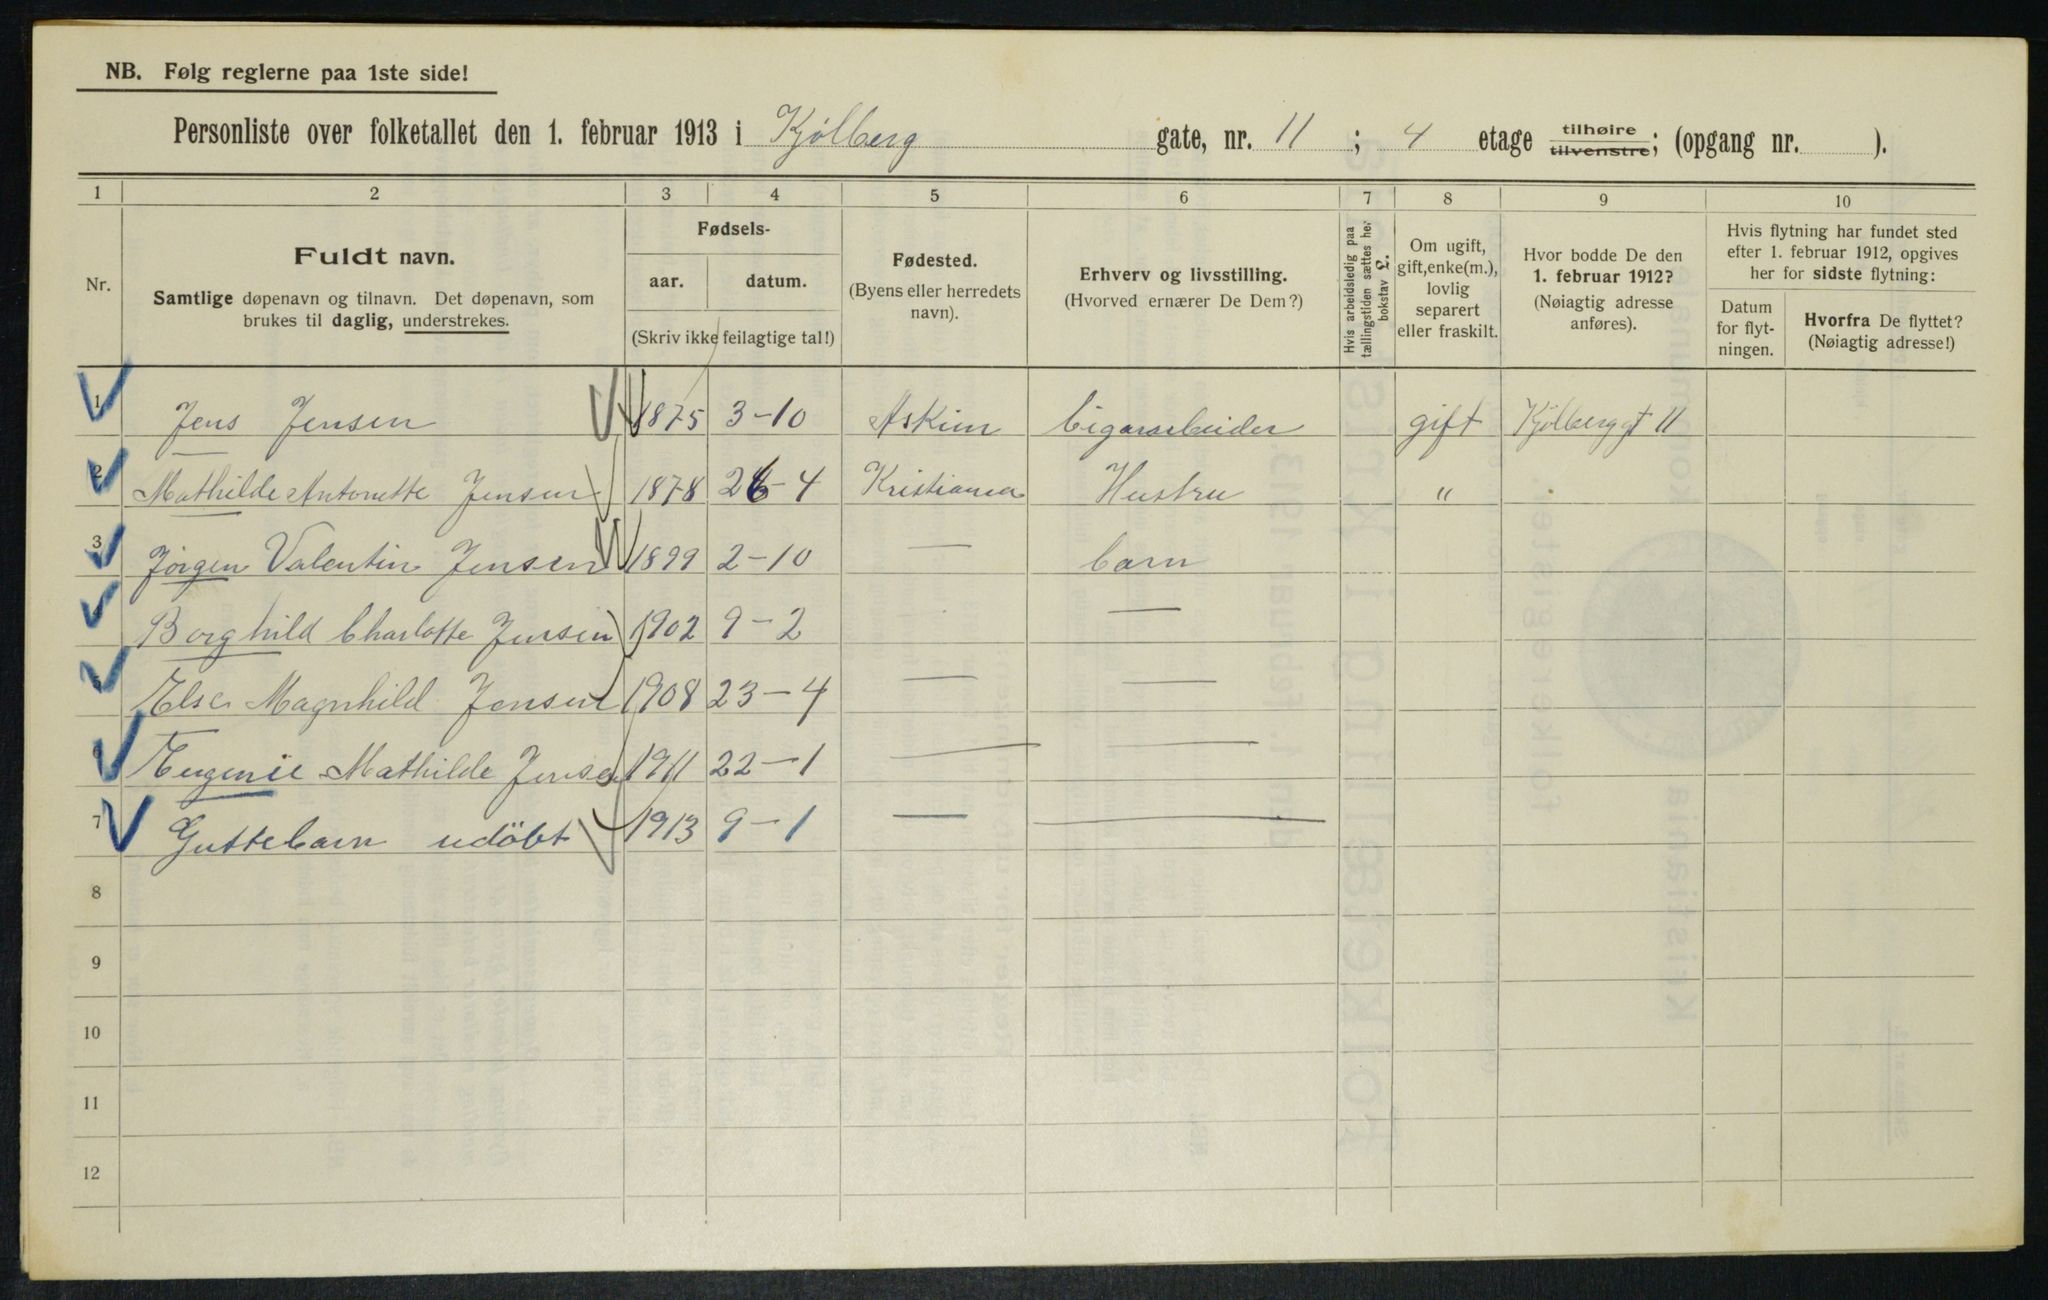 NB. Følg reglerne paa 1ste side!
Personliste over folketallet den 1. februar 1913 i Kjölberg gate, nr. 11 ; 4 etage tilhøire tilvenstre; (opgang nr. ).
1 2 3 4 5 6 7 8 9 10
Nr.
Fuldt navn.
Samtlige døpenavn og tilnavn. Det døpenavn, som
brukes til daglig, understrekes.
Fødsels-
aar. datum.
(Skriv ikke feilagtige tal!)
Fødested.
(Byens eller herredets
navn).
Erhverv og livsstilling.
(Hvorved ernærer De Dem?)
Hvis arbeidsledig paa
tællingstiden sættes her
bokstav L.
Om ugift,
gift, enke(m.),
lovlig
separert
eller fraskilt.
Hvor bodde De den
1. februar 1912?
(Nøiagtig adresse
anføres).
Hvis flytning har fundet sted
efter 1. februar 1912, opgives
her for sidste flytning:
Datum
for flyt-
ningen.
Hvorfra De flyttet?
(Nøiagtig adresse!)
1 Jens Jensen 1875 3-10 Askim Cigararbeider gift Kjölberggt 11
2 Mathilde Antonette Jensen 1878 26-4 Kristiania Hustru "
3 Jörgen Valentin Jensen 1899 2-10 — barn
4 Borghild Charlotte Jensen 1902 9-2 — —
5 Else Magnhild Jensen 1908 23-4 — —
6 Eugenie Mathilde Jensen 1911 22-1 — —
7 Guttebarn udöbt 1913 9-1 — —
8
9
10
11
12